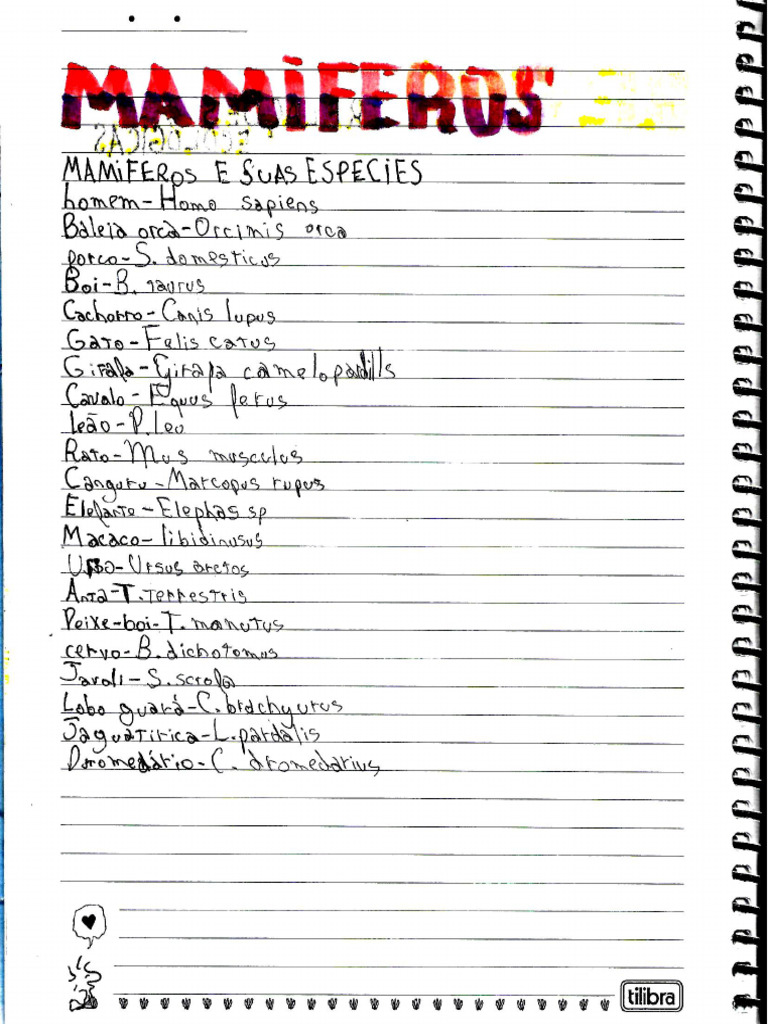 MAMiFEROS
MAMiFEROS E SUAS ESPECIES
homem-Homo sapiens
Baleia orca-Orcimis orca
porco-S. domesticus
Boi-B. taurus
Cachorro-Canis lupus
Gato-Felis catus
Girafa-Girafa camelopardills
Cavalo-Equus ferus
leão-P.leo
Rato-Mus musculus
Canguru-Marcopus rupus
Elefante-Elephas sp
Macaco-libidinusus
Urso-Ursus arctos
Anta-T.terrestris
Peixe-boi-T. manatus
cervo-B.dichotomus
Javali-S.scrofa
Lobo guará-C.brachyurus
Jaguatirica-L.pardalis
Dromedário-C. dromedarius
tilibra